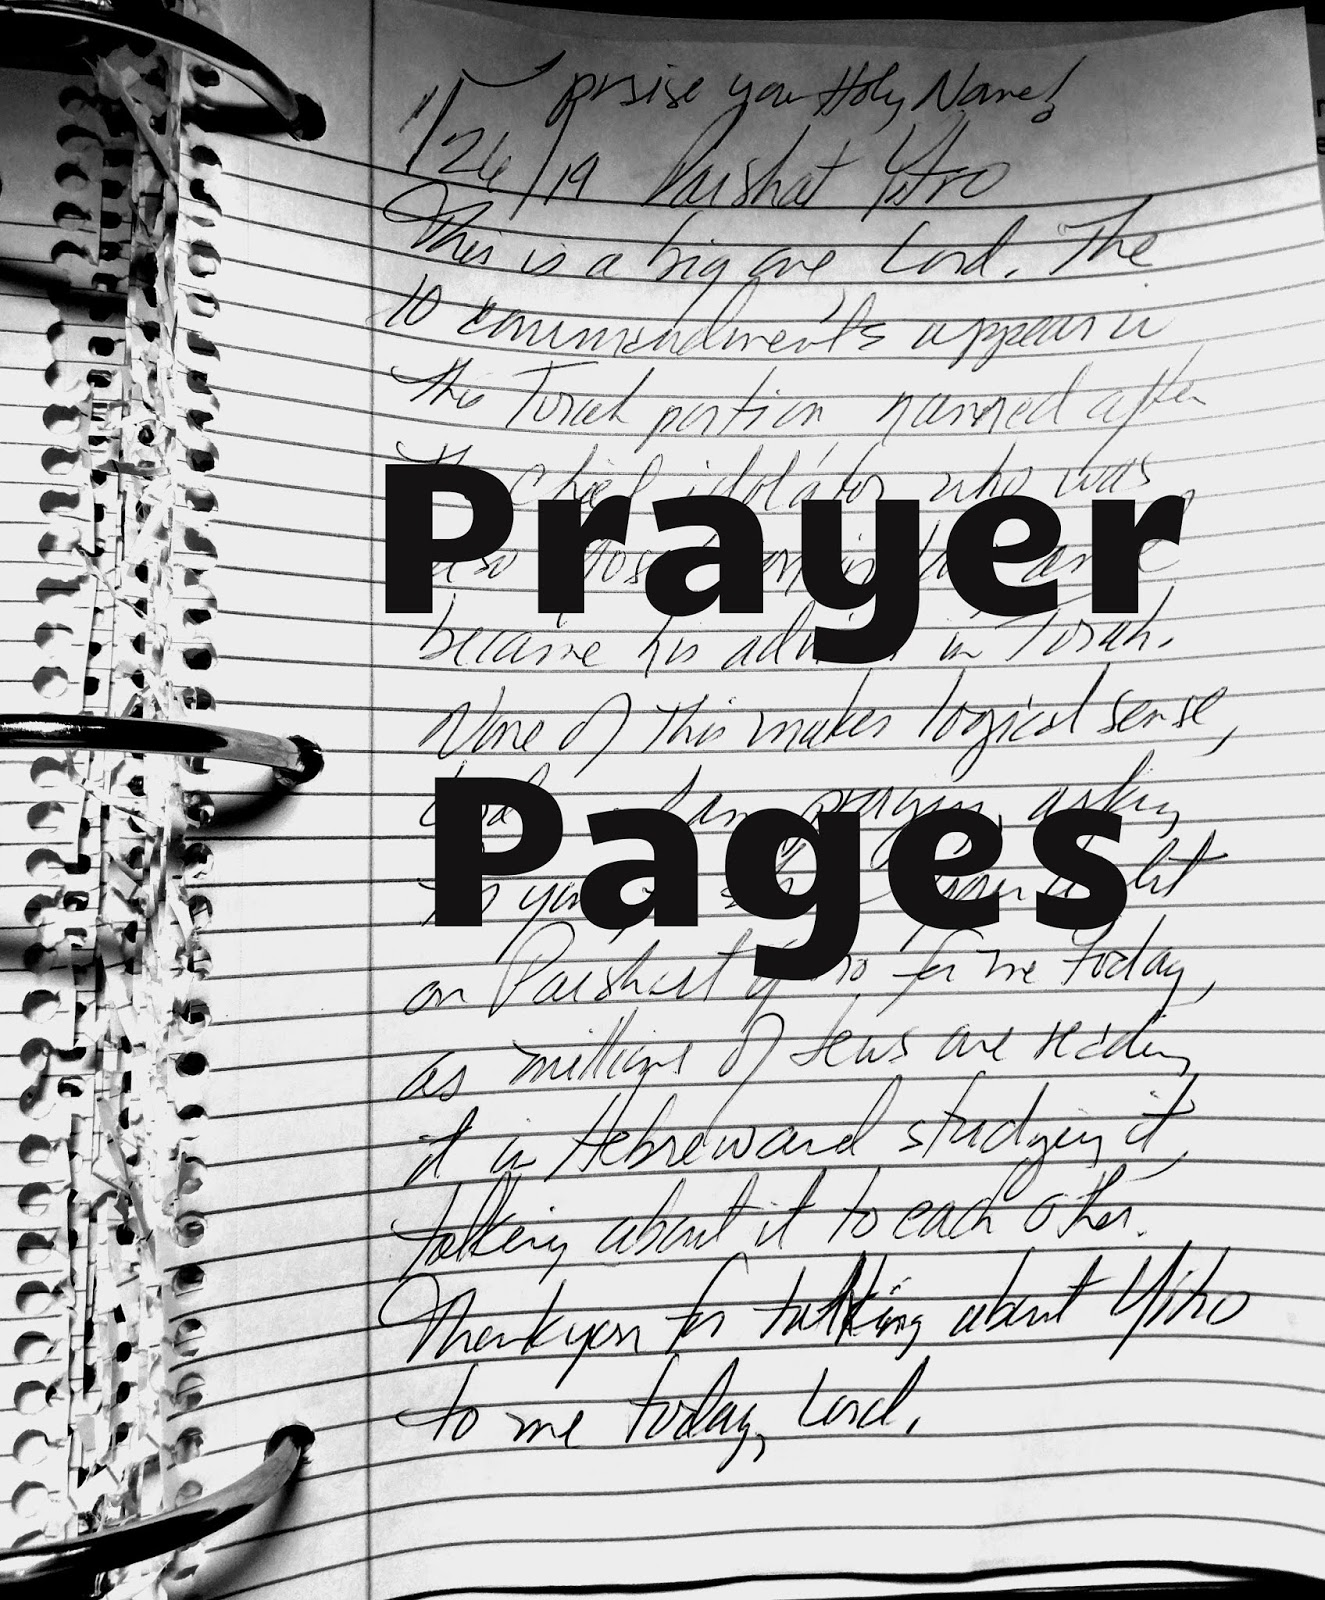 I praise your Holy Name!
1/26/19 Parshat Yitro
This is a big one Lord. The
10 commandments appear in
this Torah portion named after
the chief idolator who was
Prayer
also
became his in Torah.
None of this makes logical sense,
Pages
I am praying, asking
you light
on Parshat Yitro for me today,
as millions of Jews are reading
it in Hebrew and studying it,
talking about it to each other.
Thank you for talking about Yitro
to me today, Lord.